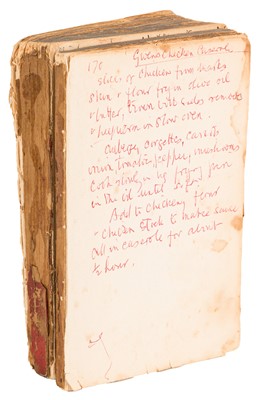 170 Gwens Chicken Casserole
slice or chicken from Marks
skin & flour fry in olive oil
& butter,
& keep warm in slow oven.
Cabbage, corgettes, carrots
onion tomatoe, pepper, mushrooms
Cook slowly in big frying pan
in the oil until soft.
Add to chicken, flour
- chicken stock to make sauce
all in casserole for about
½ hour.